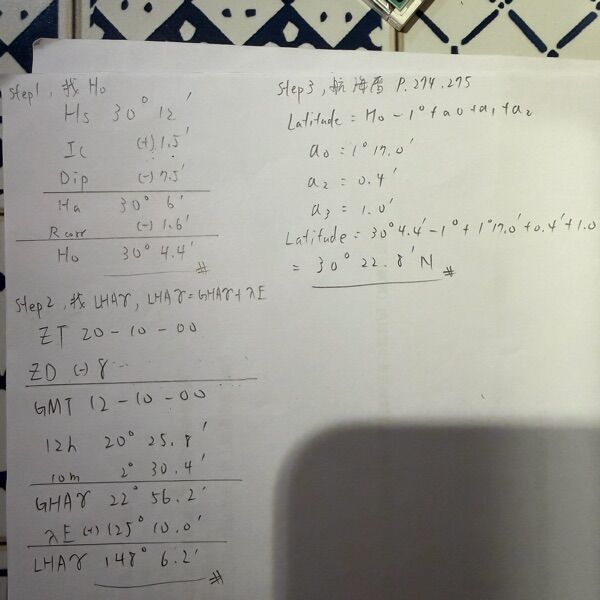 Step1, 找 Ho
Hs 30° 12'
Ic (+) 1.5'
Dip (-) 7.5'
Ha 30° 6'
Rcorr (-) 1.6'
Ho 30° 4.4'
#
Step2, 找 LHAγ, LHAγ=GHAγ+λE
ZT 20-10-00
ZD (-) 8
GMT 12-10-00
12h 20° 25.8'
10m 2° 30.4'
GHAγ 22° 56.2'
λE (+) 125° 10.0'
LHAγ 148° 6.2'
#
Step3, 航海曆 P.274.275
Latitude = Ho - 1° + a0 + a1 + a2
a0 = 1° 17.0'
a2 = 0.4'
a3 = 1.0'
Latitude = 30° 4.4' - 1° + 1° 17.0' + 0.4' + 1.0
= 30° 22.8' N #